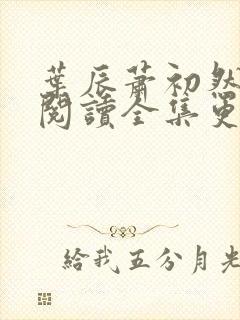 葉辰蕭初然
閱讀全集更
給我五分月光